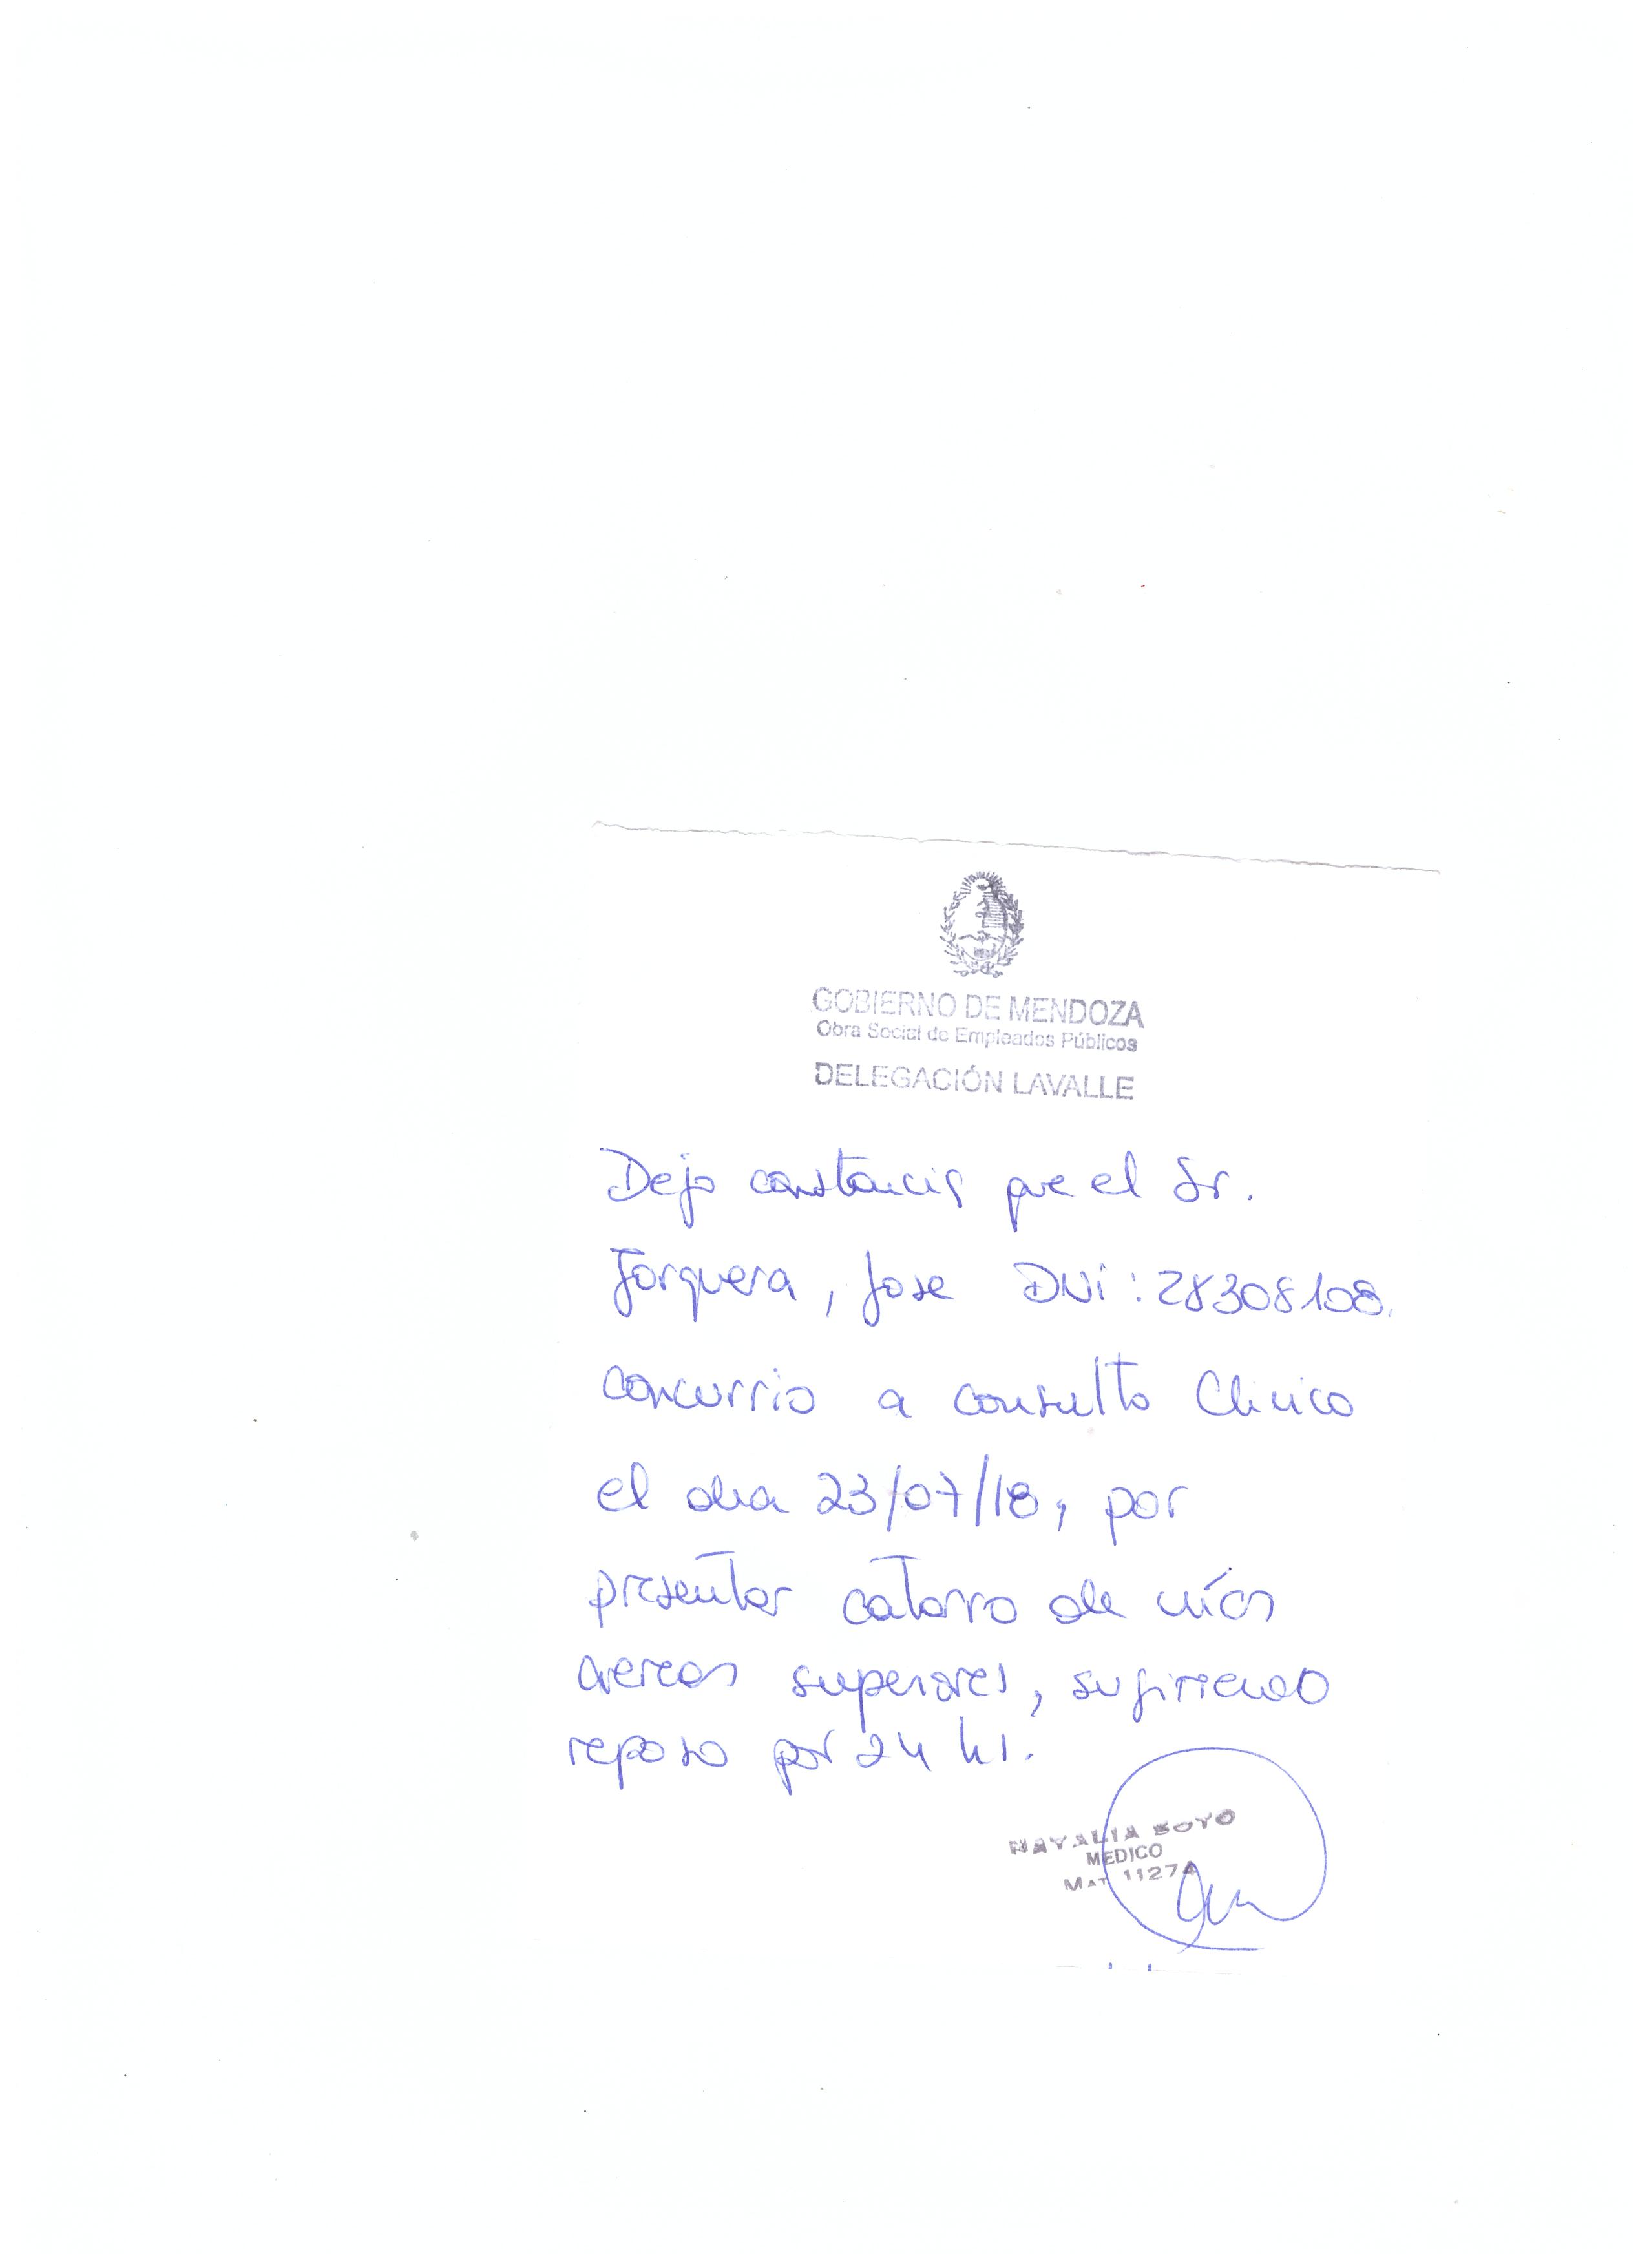 GOBIERNO DE MENDOZA
Obra Social de Empleados Públicos
DELEGACIÓN LAVALLE
Dejo constancia que el Sr.
Jorquera, Jose DNi: 28308108.
concurrio a consulto Clinico
el dia 23/07/18, por
presentar catarro de vías
aereas superiores, sugiriendo
reposo por 24 hs.
NATALIA BOYO
MEDICO
MAT 11274